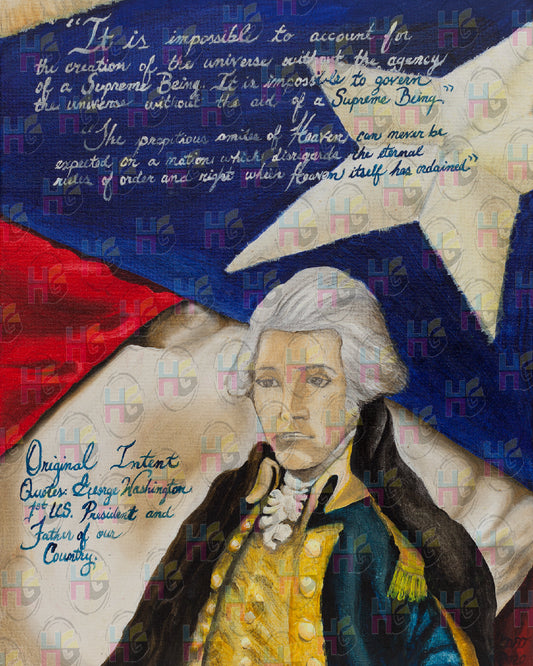 "It is impossible to account for
the creation of the universe without the agency
of a Supreme Being. It is impossible to govern
the universe without the aid of a Supreme Being."
"The propitious smiles of Heaven can never be
expected on a nation which disregards the eternal
rules of order and right which Heaven itself has ordained"
Original Intent
Quotes: George Washington
1st U.S. President and
Father of our
Country.